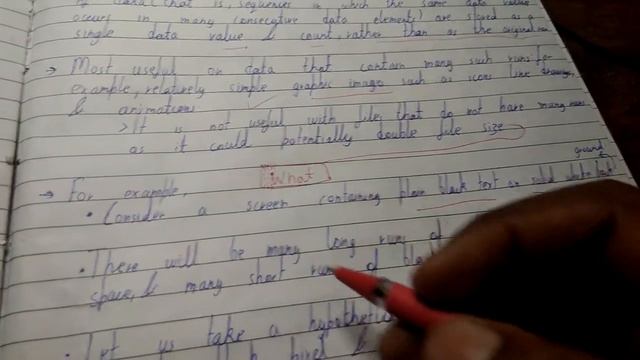 of data (that is, sequences in which the same data value
occurs in many consecutive data elements) are stored as a
single data value & count, rather than as the original run
→ Most useful on data that contain many such runs for
example, relatively simple graphic images such as icons line drawings,
& animations
> It is not useful with files that do not have many runs
as it could potentially double file size
What
ground
→ For example,
• Consider a screen containing plain black text on solid white back
• There will be many long runs of
space, & many short runs of
• Let us take a hypothetical